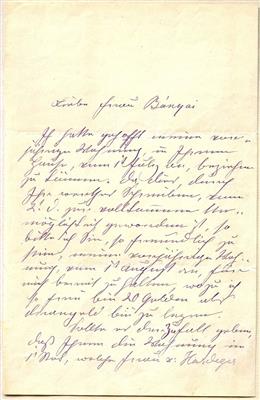 Liebe Frau Bányai
Ich hatte gehofft meine vor-
jährige Wohnung in Ihrem
Hause, vom 1t July an, beziehen
zu können. Da dies durch
Ihr werthes Schreiben, vom
2. d. zur vollkommenen Un-
möglichkeit geworden ist, so
bitte ich Sie, so freundlich zu
sein, meine vorjährige Woh-
nung, vom 1t August an, für
mich bereit zu halten, wozu ich
so frei bin 20 Gulden als
Dreangeld bei zu legen.
Sollte es der Zufall geben,
daß Ihnen die Wohnung im
1t Stock, welche Frau v. Hardegg